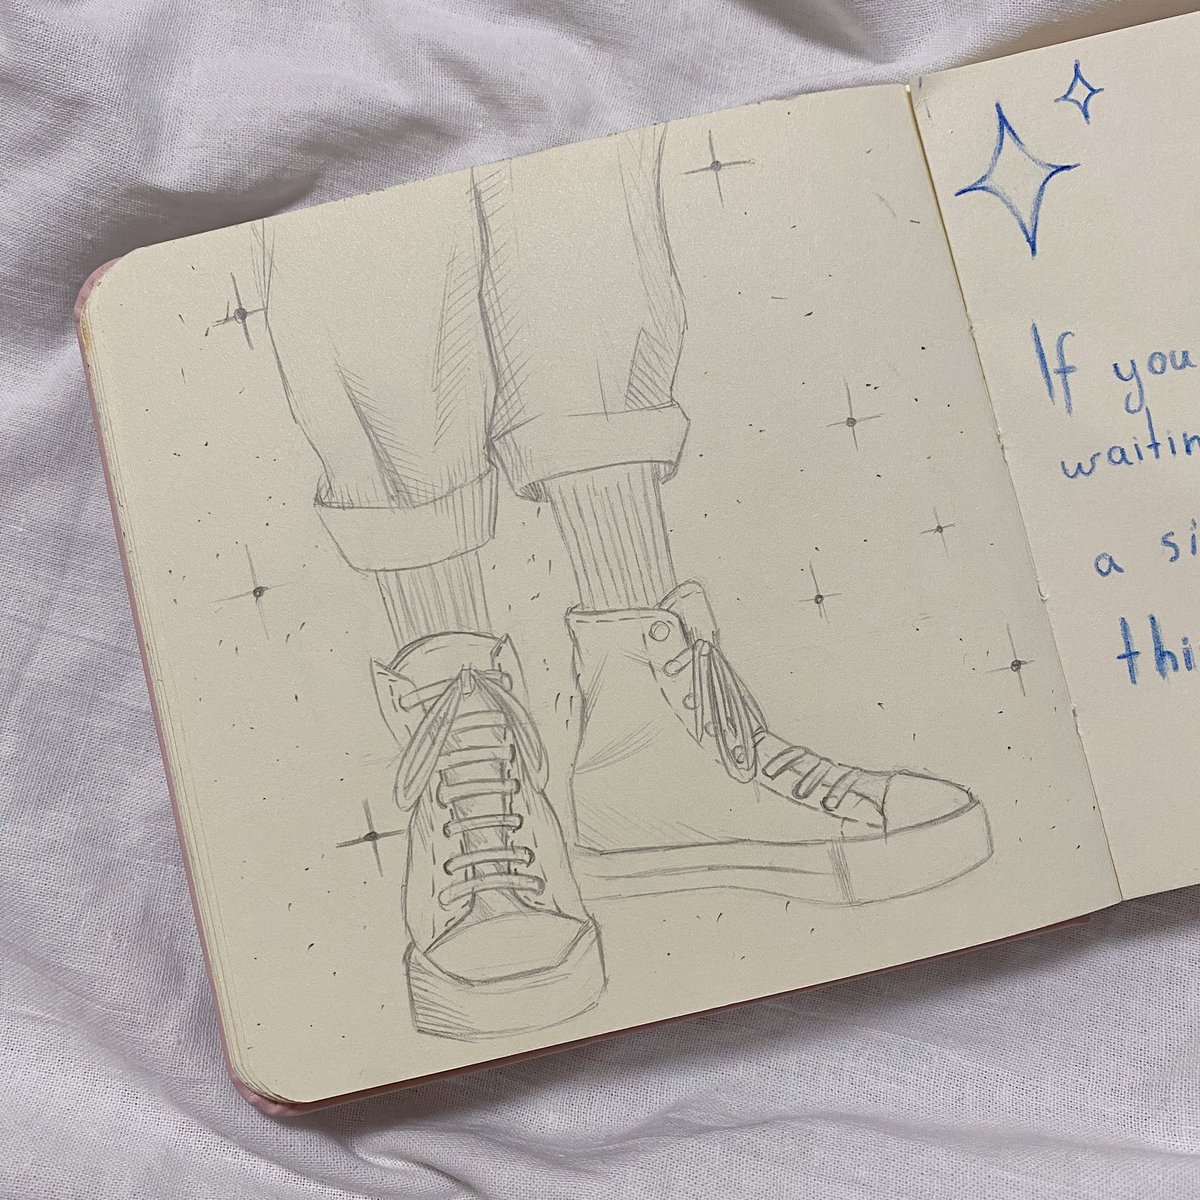 If you
waitin
a si
thi